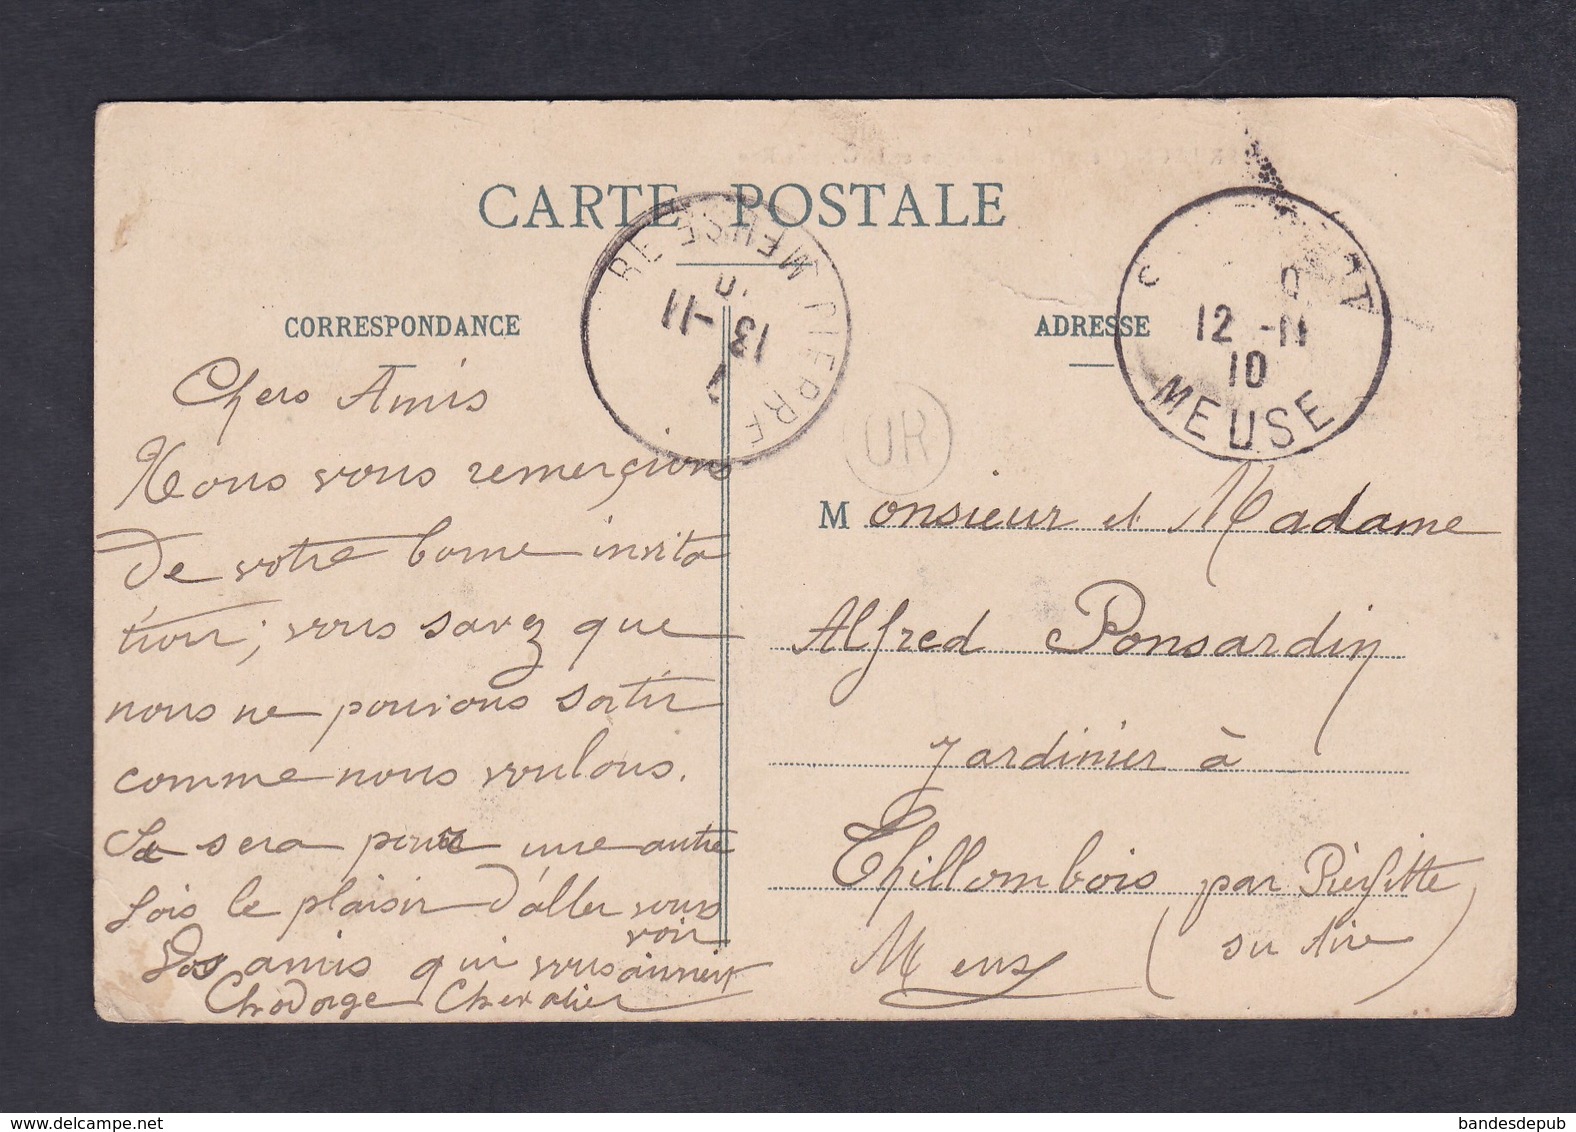 CARTE POSTALE
CORRESPONDANCE
Chers Amis
Nous vous remerçions
de votre bonne invita
tion; vous savez que
nous ne pouvons sortir
comme nous voulons.
Se sera pour une autre
fois le plaisir d'aller vous
voir
Vos amis qui vous aiment
Chodorge Chevalier
PIERRE
MEUSE
13 -11
ADRESSE
12 -11
10
MEUSE
UR
Monsieur et Madame
Alfred Ponsardin
Jardinier à
Thillombois par Pierfitte
Meuse (su Aire)
bandesdepub